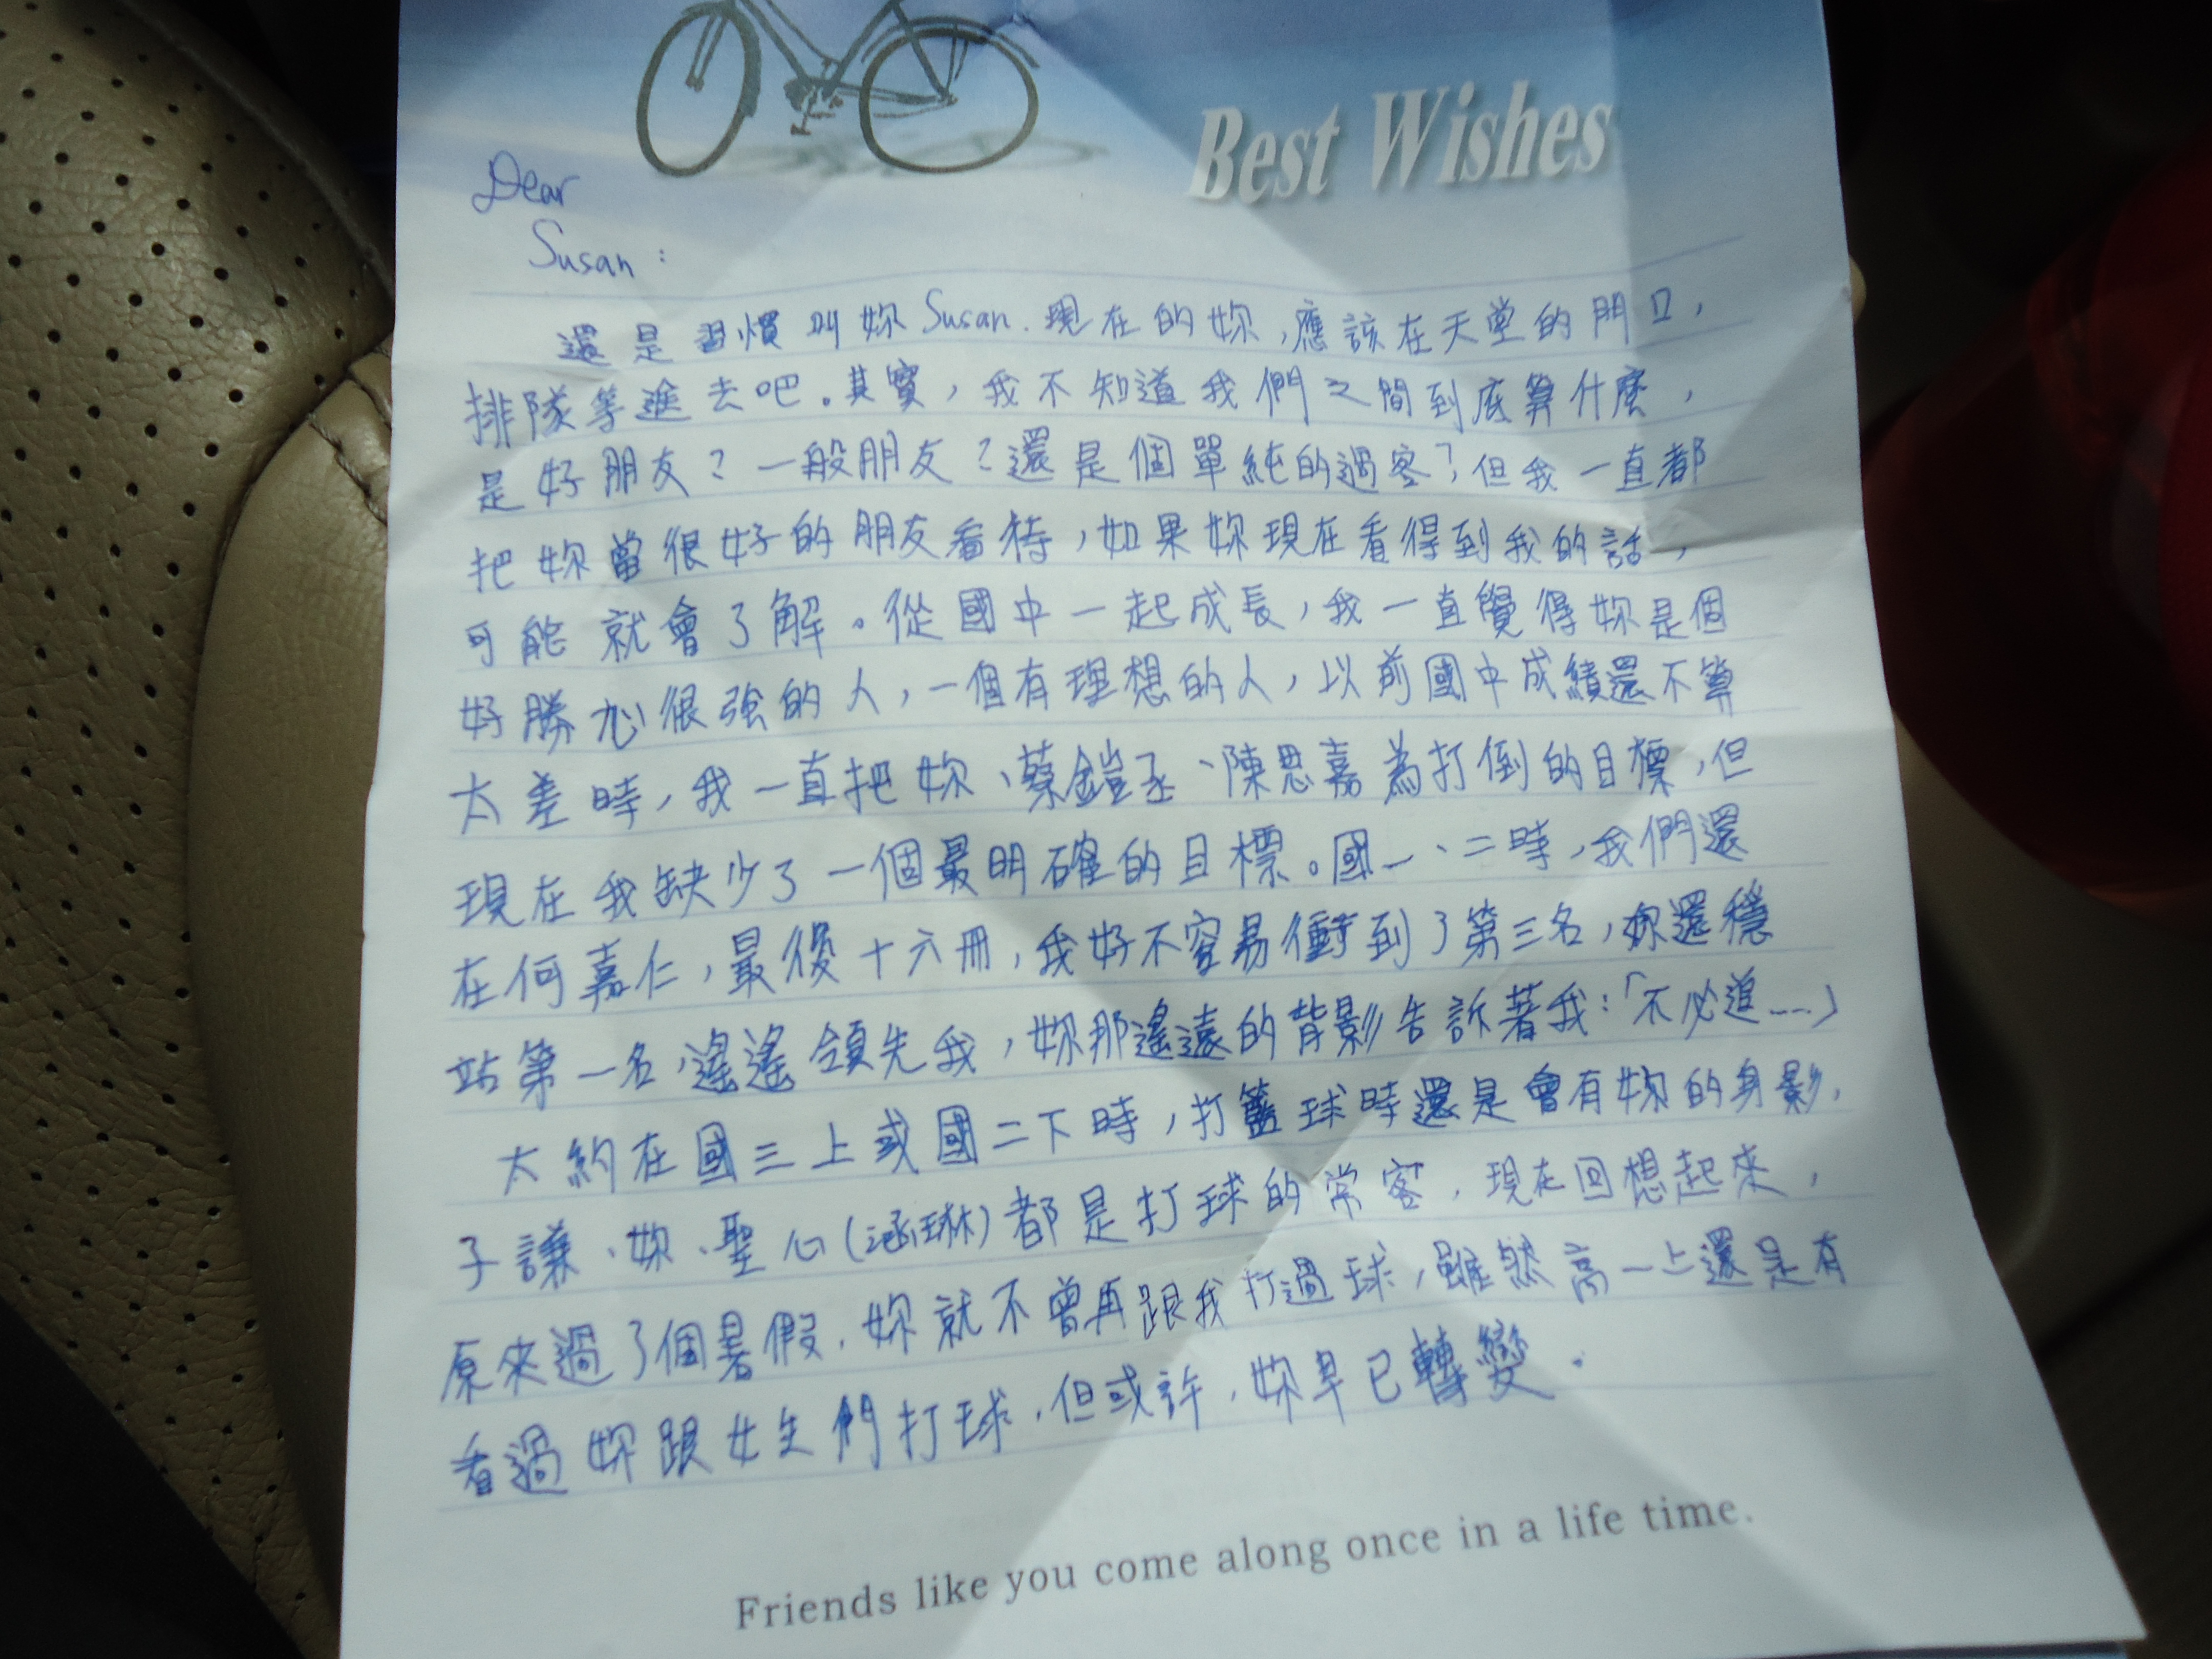 Best Wishes
Dear
Susan:
還是習慣叫妳Susan.現在的妳,應該在天堂的門口,
排隊等進去吧。其實,我不知道我們之間到底算什麼,
是好朋友?一般朋友?還是個單純的過客?但我一直都
把妳當很好的朋友看待,如果妳現在看得到我的話,
可能就會了解。從國中一起成長,我一直覺得妳是個
好勝心很強的人,一個有理想的人,以前國中成績還不算
太差時,我一直把妳、蔡鎧丞、陳思嘉為打倒的目標,但
現在我缺少了一個最明確的目標。國一、二時,我們還
在何嘉仁,最後十六冊,我好不容易衝到了第三名,妳還穩
站第一名,遙遙領先我,妳那遙遠的背影告訴著我:「不必追……」
大約在國三上或國二下時,打籃球時還是會有妳的身影.
子謙、妳、聖心(涵琳)都是打球的常客,現在回想起來,
原來過了個暑假,妳就不曾再跟我打過球,雖然高一上還是有
看過妳跟女生們打球,但或許,妳早已轉變.
Friends like you come along once in a life time.